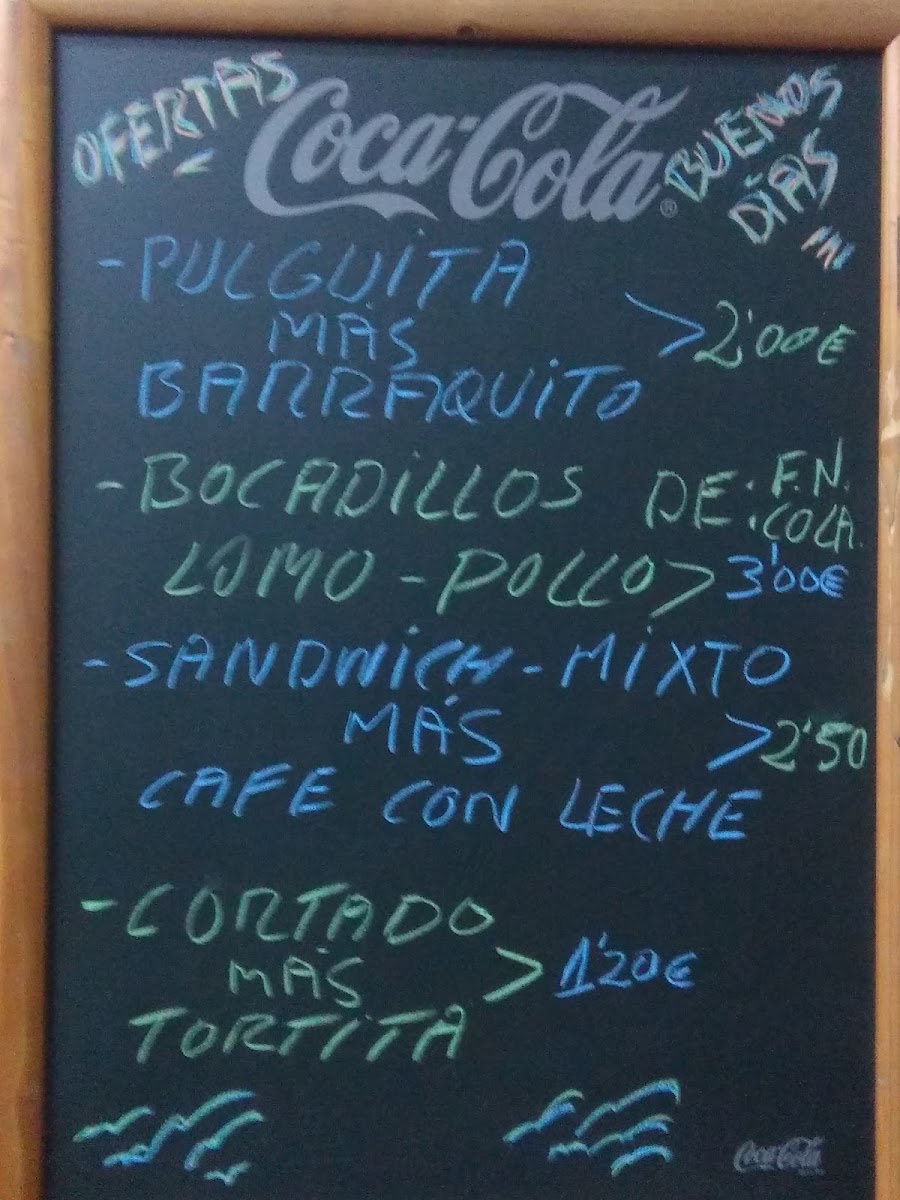 OFERTAS
Coca-Cola
BUENOS
DÍAS
- PULGUITA
MÁS
> 2'00€
BARRAQUITO
- BOCADILLOS DE: F.N.
COLA
LOMO - POLLO > 3'00€
- SANDWICH - MIXTO
MÁS
> 2'50
CAFE CON LECHE
- CORTADO
MÁS > 1'20€
TORTITA
Coca-Cola